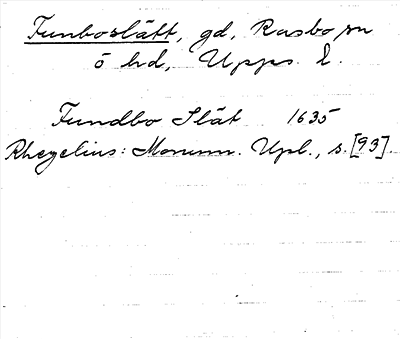 Funboslätt, gd, Rasbo sn
ö hd, Upps. l.
Fundbo Slät 1635
Rhezelius: Monum. Upl., s. [93].